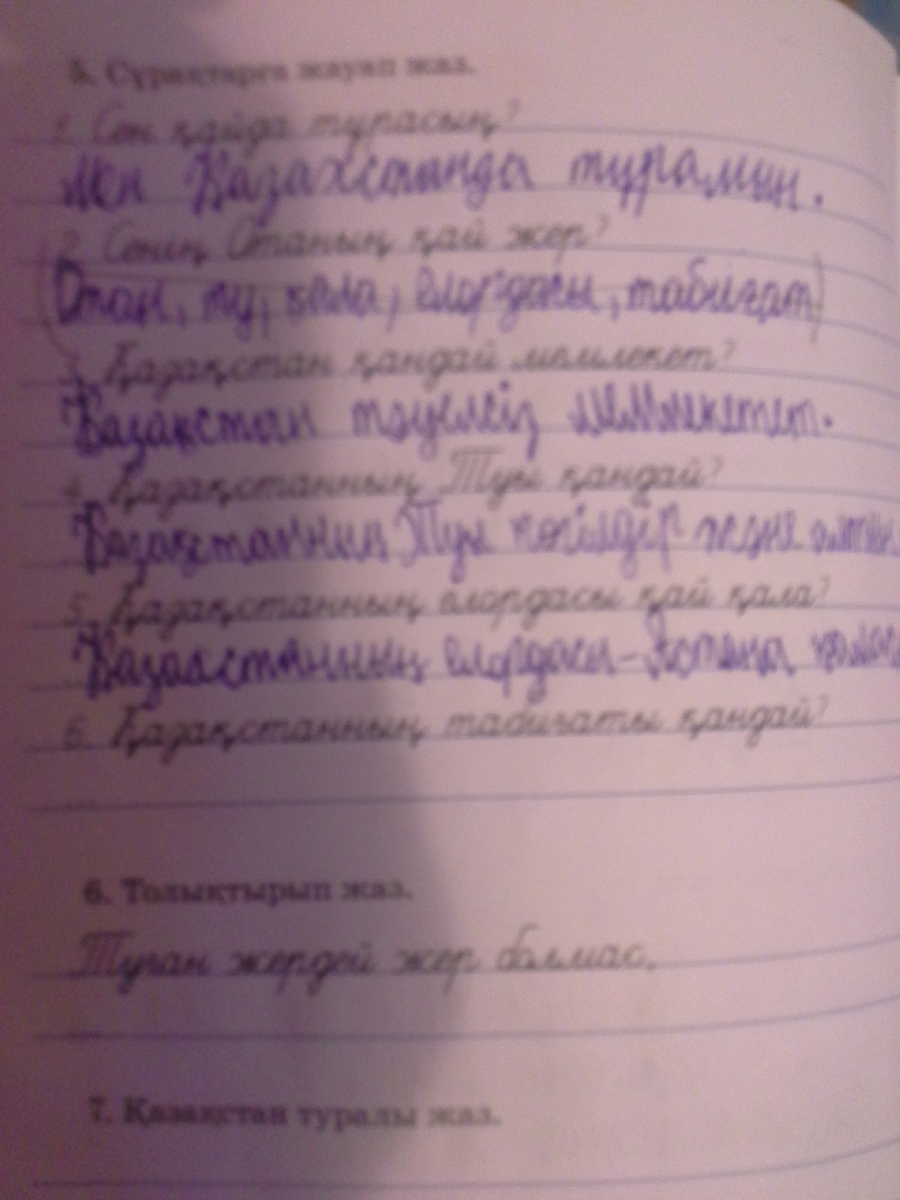 5. Сұрақтарға жауап жаз.
1. Сен қайда тұрасың?
Мен Қазахстанда тұрамын.
2. Сенің Отаның қай жер?
Отан, ту, қала, елордасы, табиғат
3. Қазақстан қандай мемлекет?
Қазақстан тәуелсіз мемлекетет.
4. Қазақстанның Туы қандай?
Қазақстанның Туы көгілдір және алтын
5. Қазақстанның елордасы қай қала?
Қазақстанның елордасы-Астана қалас
6. Қазақстанның табиғаты қандай?
6. Толықтырып жаз.
Туған жердей жер болмас,
7. Қазақстан туралы жаз.